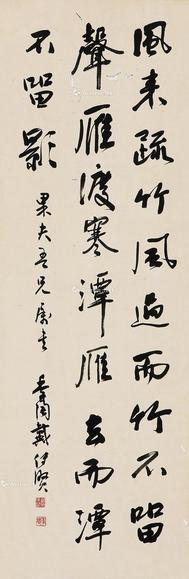 風来疏竹風過而竹不留
聲雁渡寒潭雁去而潭
不留影
果夫吾兄屬書 季陶戴傳賢